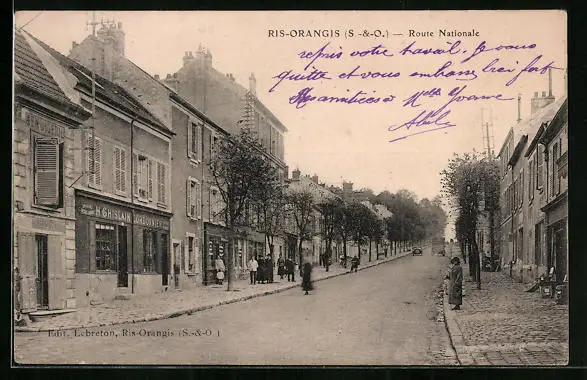 RIS-ORANGIS (S.-&-O.) — Route Nationale
repris votre travail. Je vous
quitte et vous embrasse très fort
Mes amitiés à Melle Yvonne
Abel
H. GHISLAIN
Edit. Lebreton, Ris-Orangis (S.-&-O.)